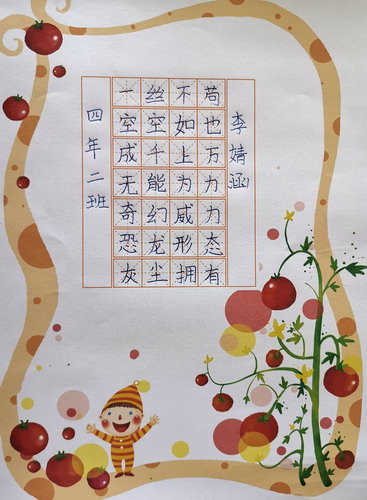 一丝不苟
空空如也
成千上万
无能为力
奇幻威力
恐龙形态
灰尘拥有
李婧涵
四年二班